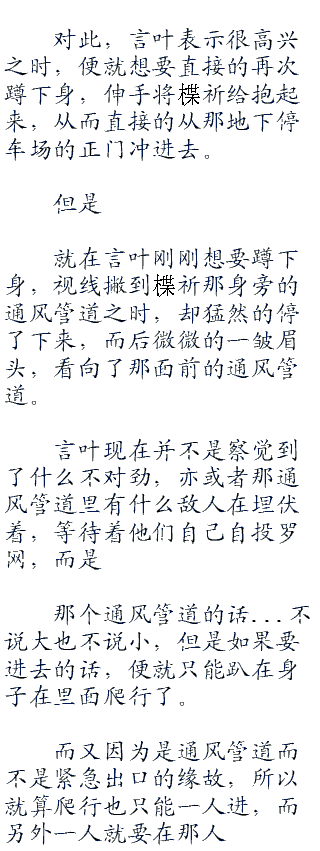 对此，言叶表示很高兴
之时，便就想要直接的再次
蹲下身，伸手将楪祈给抱起
来，从而直接的从那地下停
车场的正门冲进去。
但是
就在言叶刚刚想要蹲下
身，视线撇到楪祈那身旁的
通风管道之时，却猛然的停
了下来，而后微微的一皱眉
头，看向了那面前的通风管
道。
言叶现在并不是察觉到
了什么不对劲，亦或者那通
风管道里有什么敌人在埋伏
着，等待着他们自己自投罗
网，而是
那个通风管道的话...不
说大也不说小，但是如果要
进去的话，便就只能趴在身
子在里面爬行了。
而又因为是通风管道而
不是紧急出口的缘故，所以
就算爬行也只能一人进，而
另外一人就要在那人